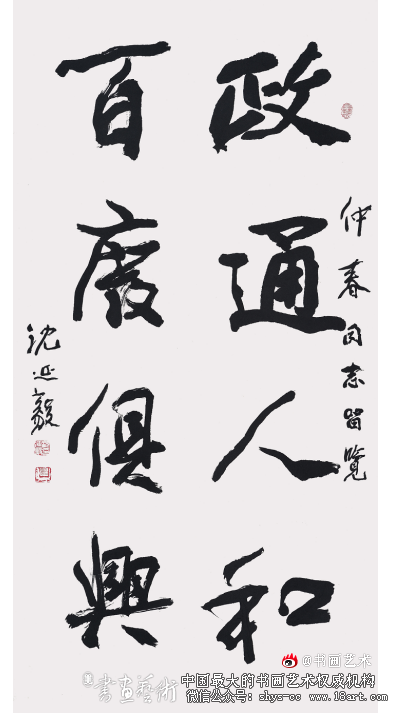 仲春同志留覽
政通人和
百廢俱興
沈延毅
@书画艺术
書畫藝術
中国最大的书画艺术权威机构
微信公众号: shys-cc www.18art.com